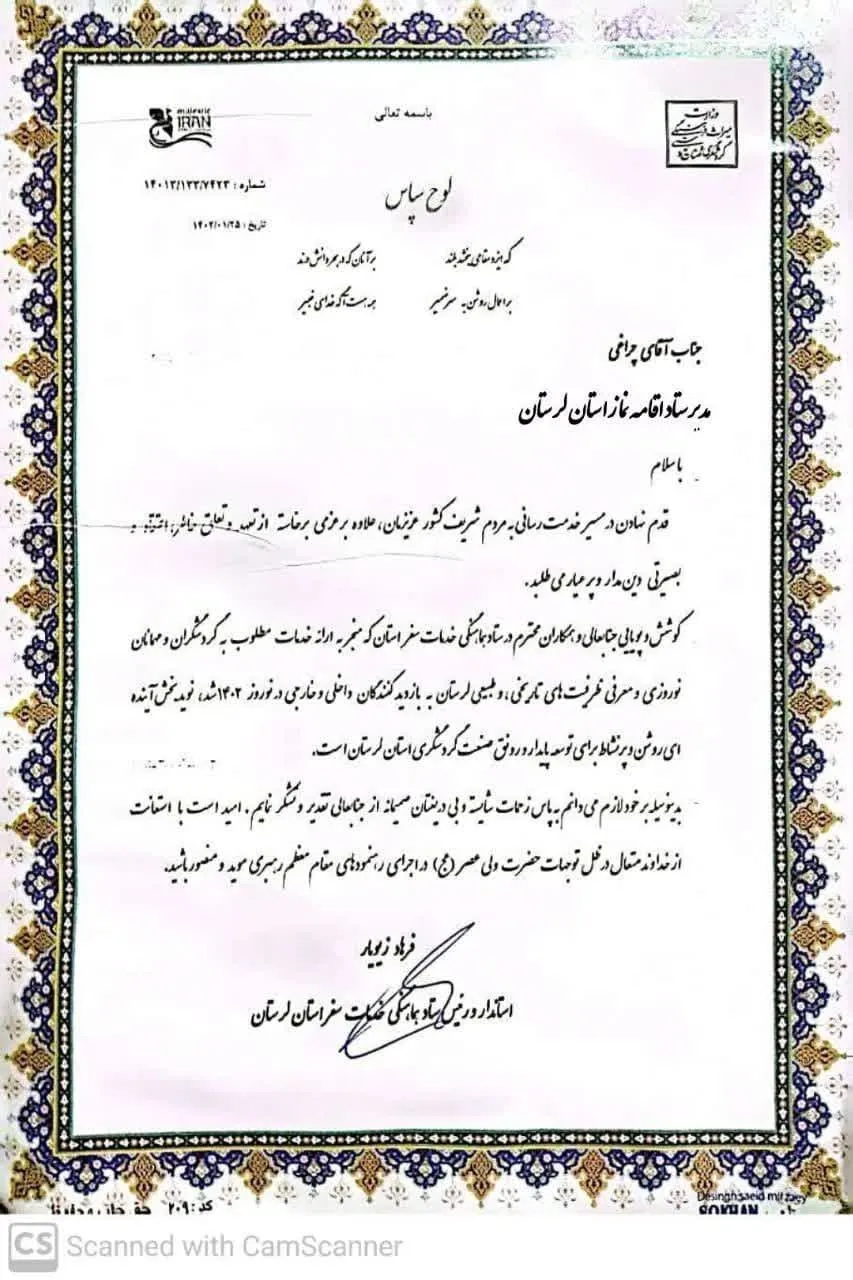 باسمه تعالی
majestic
IRAN
وزارت
میراث فرهنگی
گردشگری و صنایع دستی
شماره : ۱۴۰۱۲/۱۳۳/۷۴۲۳
تاریخ : ۱۴۰۲/۰۱/۲۵
لوح سپاس
که ایزد مقامی بخشد بلند    بر آنان که در بحر دانش دند
بر اعمال روشن به سر ضمیر    همه هست آگه خدای خبیر
جناب آقای چراغی
مدیر ستاد اقامه نماز استان لرستان
با سلام
قدم نهادن در مسیر خدمت رسانی به مردم شریف کشور عزیزمان، علاوه بر عزمی برخاسته از تعهد و تعلق خاطر، اعتقاد و
بصیرتی دین مدار و پر عیار می طلبد.
کوشش و پویایی جنابعالی و همکاران محترم در ستاد هماهنگی خدمات سفر استان که منجر به ارائه خدمات مطلوب به گردشگران و مهمانان
نوروزی و معرفی ظرفیت های تاریخی، و طبیعی لرستان به بازدید کنندگان داخلی و خارجی در نوروز ۱۴۰۲ شد، نوید بخش آینده
ای روشن و پر نشاط برای توسعه پایدار و رونق صنعت گردشگری استان لرستان است.
بدینوسیله بر خود لازم می دانم به پاس زحمات شایسته و بی دریغتان صمیمانه از جنابعالی تقدیر و تشکر نمایم. امید است با استعانت
از خداوند متعال در ظل توجهات حضرت ولی عصر (عج) در اجرای رهنمودهای مقام معظم رهبری موید و منصور باشید.
فرهاد زیویار
استاندار و رئیس ستاد هماهنگی خدمات سفر استان لرستان
کد: ۲۰۹
Desingh:saeid mirzaey
SOKHAN
CS Scanned with CamScanner